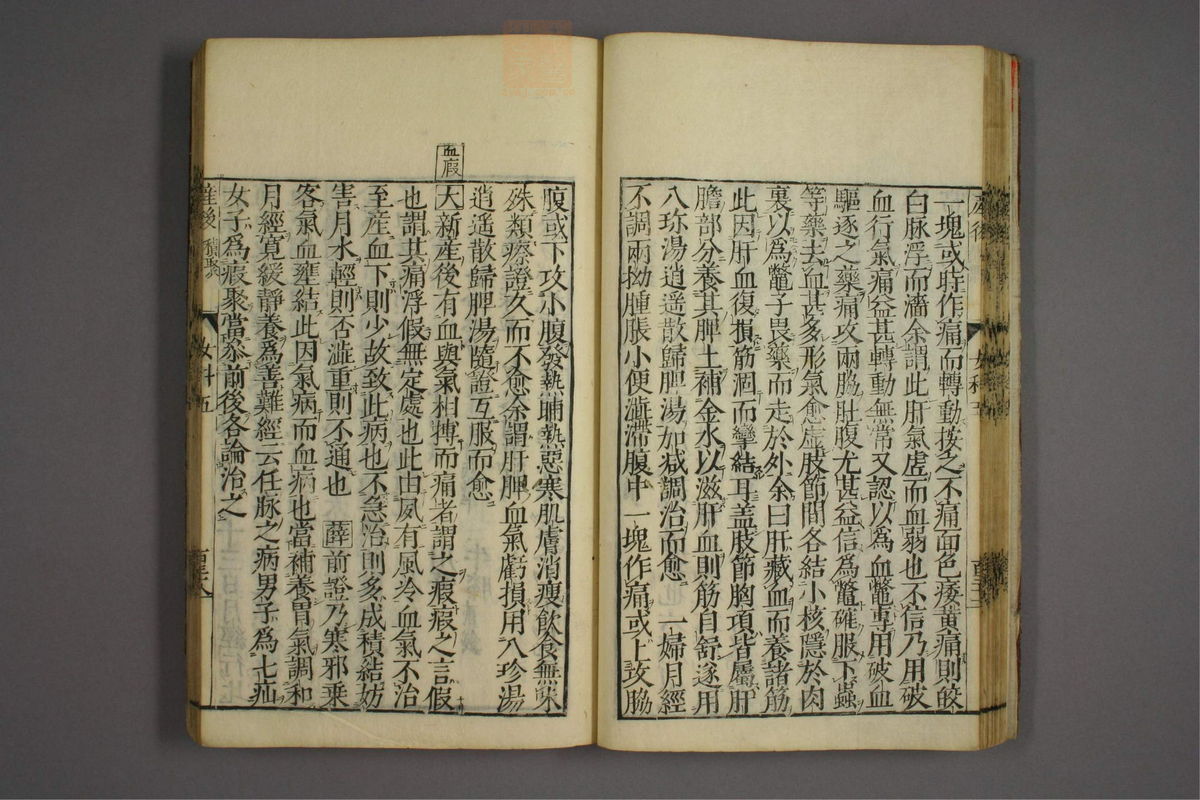 一塊或時作痛而轉動按之不痛面色痿黃痛則皎
白脉浮而濇余謂此肝氣虚而血弱也不信乃用破
血行氣痛益甚轉動無常又認以為血鱉專用破血
驅逐之藥痛攻兩脇肚腹尤甚益信為鱉確服下蟲
等藥去血甚多形氣愈虚肢節間各結小核隱於肉
裏以為鱉子畏藥而走於外余曰肝藏血而養諸筋
此因肝血復損筋涸而攣結耳盖肢節胸項皆屬肝
膽部分養其脾土補金水以滋肝血則筋自舒遂用
八珍湯逍遥散歸脾湯加减調治而愈 一婦月經
不調兩拗腫脹小便澁滯腹中一塊作痛或上攻脇
腹或下攻小腹發熱晡熱惡寒肌膚消瘦飲食無味
殊類瘵證久而不愈余謂肝脾血氣虧損用八珍湯
逍遥散歸脾湯隨證互服而愈
血瘕
大新產後有血與氣相搏而痛者謂之瘕瘕之言假
也謂其痛浮假無定處也此由夙有風冷血氣不治
至産血下則少故致此病也不急治則多成積結妨
害月水輕則否澁重則不通也 薛前證乃寒邪乗
客氣血壅結此因氣病而血病也當補養胃氣調和
月經寛緩靜養爲善難經云任脉之病男子爲七疝
女子爲瘕聚當叅前後各論治之
產後 積聚
女科五